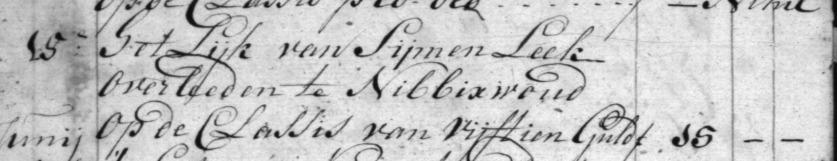 op de Classis
15 Het Lijk van Sijmen Leek
overleeden te Nibbixwoud
Junij op de Classis van vijftien Guld 15 – –